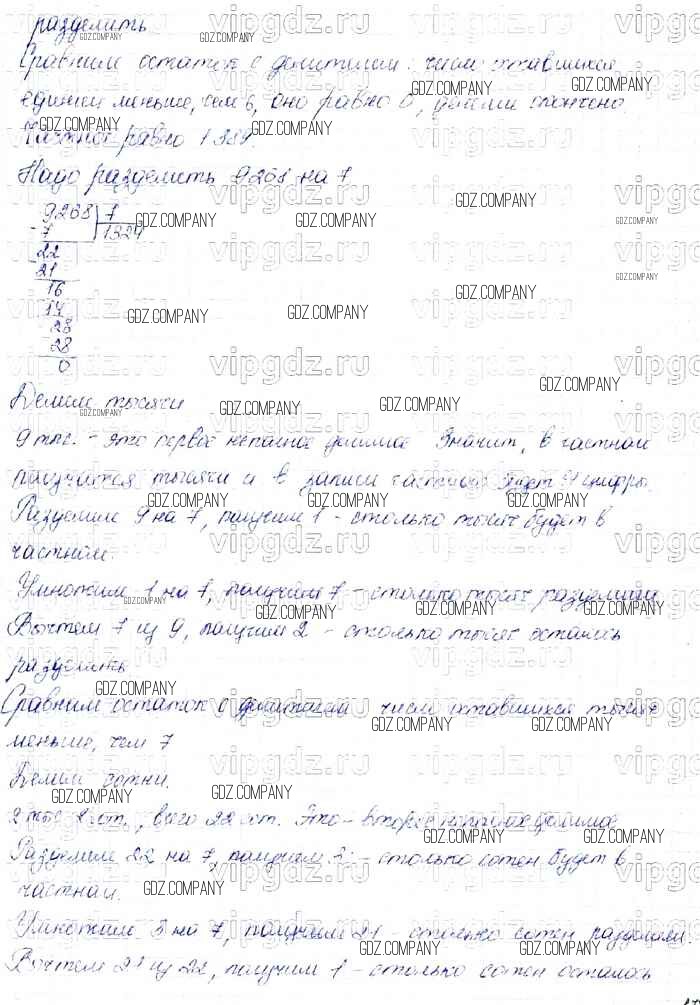 разделить.
Сравним остаток с делителем: число оставшихся
единиц меньше, чем 6, оно равно 0, деление окончено
Частное равно 1389.
Надо разделить 9268 на 7.
9268 | 7
- 7 1324
- 22
21
- 16
14
- 28
28
0
Делим тысячи
9 тыс. - это первое неполное делимое Значит, в частном
получатся тысячи и в записи частного будет 4 цифры.
Разделим 9 на 7, получим 1 - столько тысяч будет в
частном.
Умножим 1 на 7, получим 7 - столько тысяч разделили
Вычтем 7 из 9, получим 2 - столько тысяч осталось
разделить
Сравним остаток с делителем число оставшихся тысяч
меньше, чем 7
Делим сотни.
2 тыс 2 сот., всего 22 сот. Это - второе неполное делимое
Разделим 22 на 7, получим 3 - столько сотен будет в
частном.
Умножим 3 на 7, получим 21 - столько сотен разделили.
Вычтем 21 из 22, получим 1 - столько сотен осталось
vipgdz.ru
GDZ.COMPANY